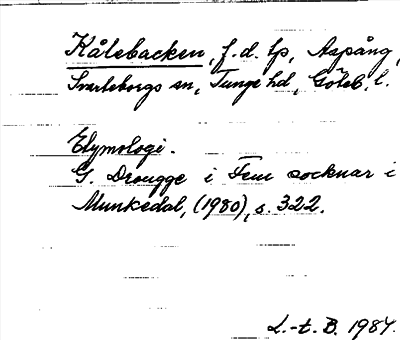 Kålebacken, f.d. lp, Aspång,
Svarteborgs sn, Tunge hd, Göteb. l.
Etymologi.
G. Drougge i Fem socknar i
Munkedal, (1980), s. 322.
L.-t. B. 1984.